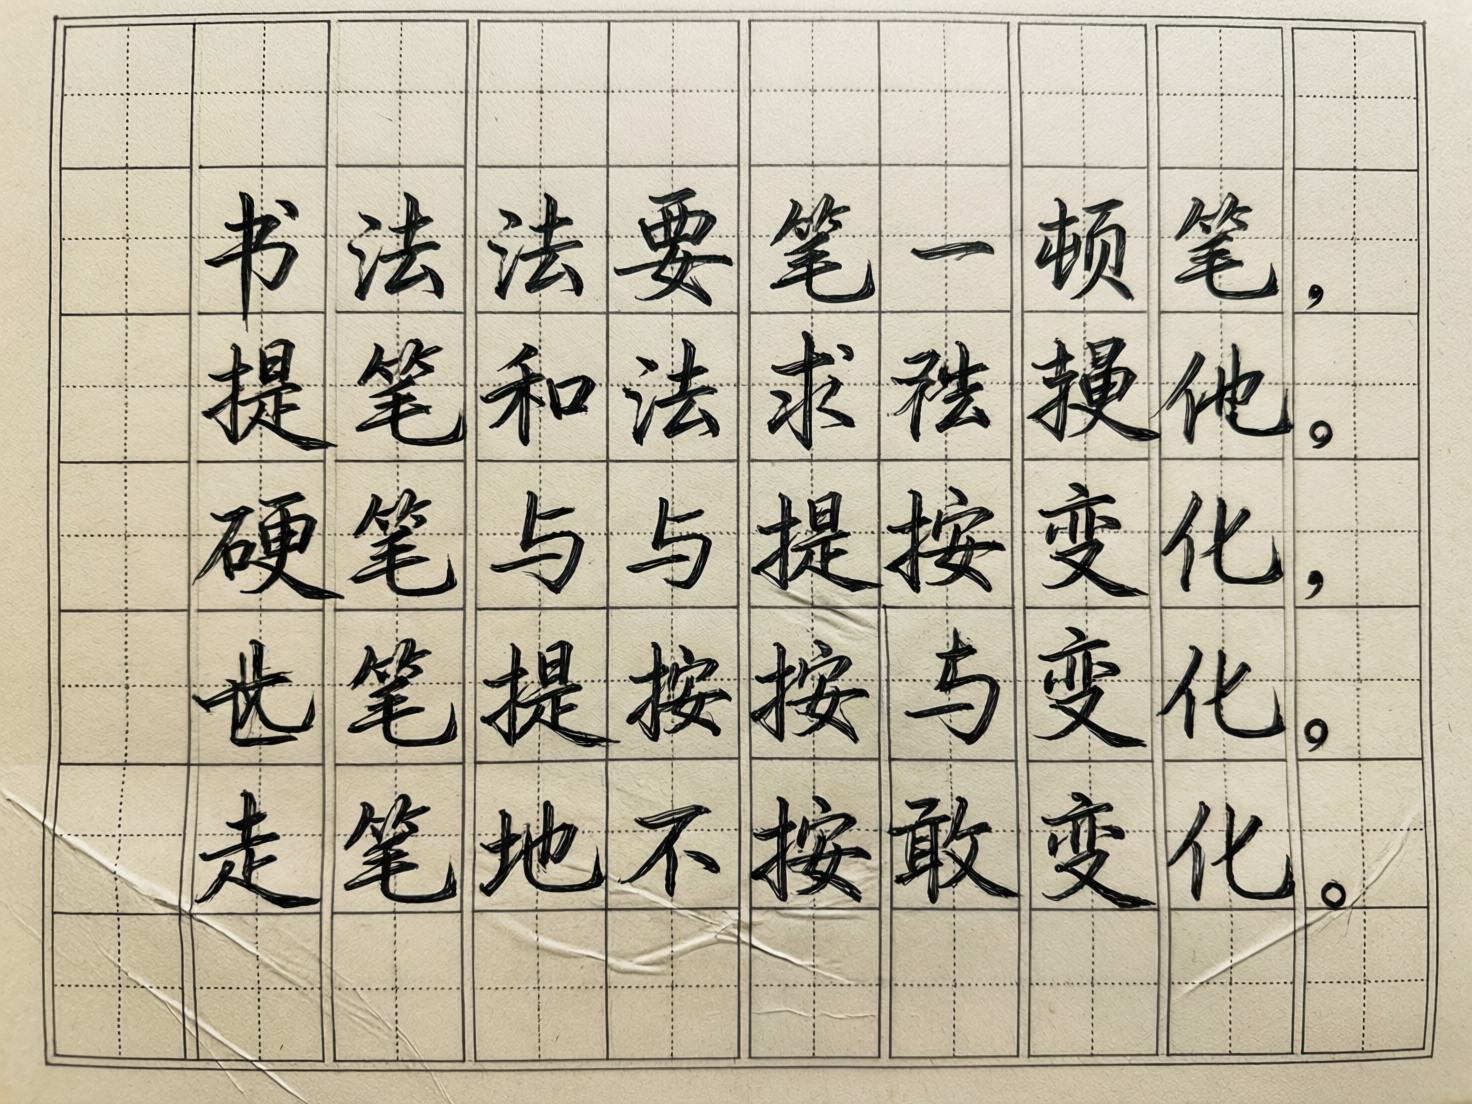 书法法要笔一顿笔，
提笔和法求法他。
硬笔与与提按变化，
世笔提按按与变化。
走笔地不按敢变化。